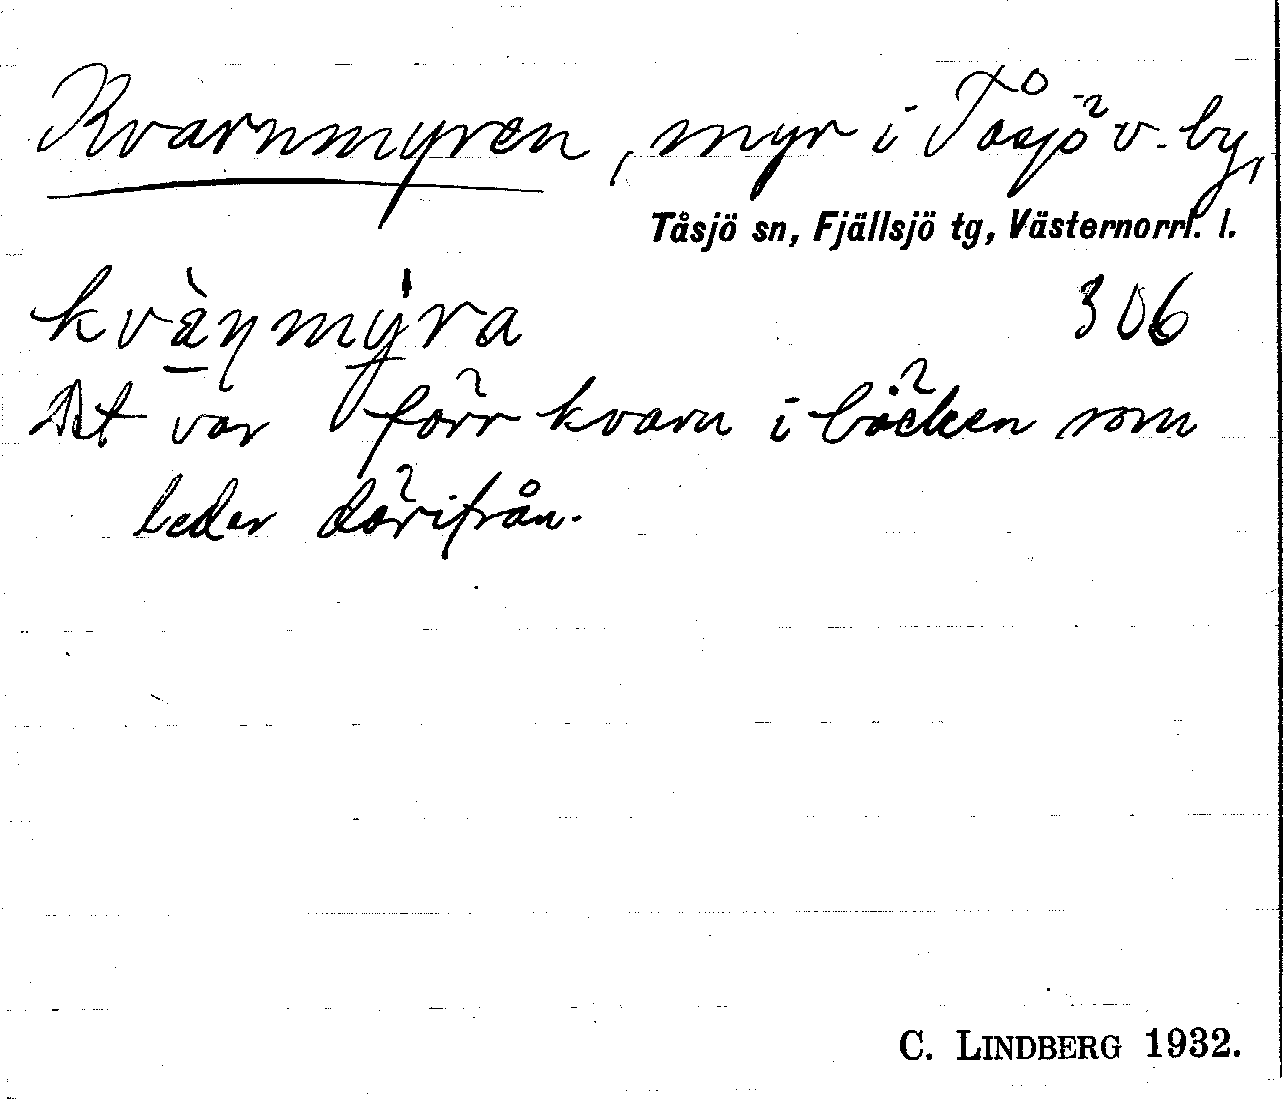 Kvarnmyren, myr i Tåsjö v. by,
Tåsjö sn, Fjällsjö tg, Västernorrl. l.
kvæ̀ɳmýra 306
Det var förr kvarn i bäcken som
leder därifrån.
C. LINDBERG 1932.